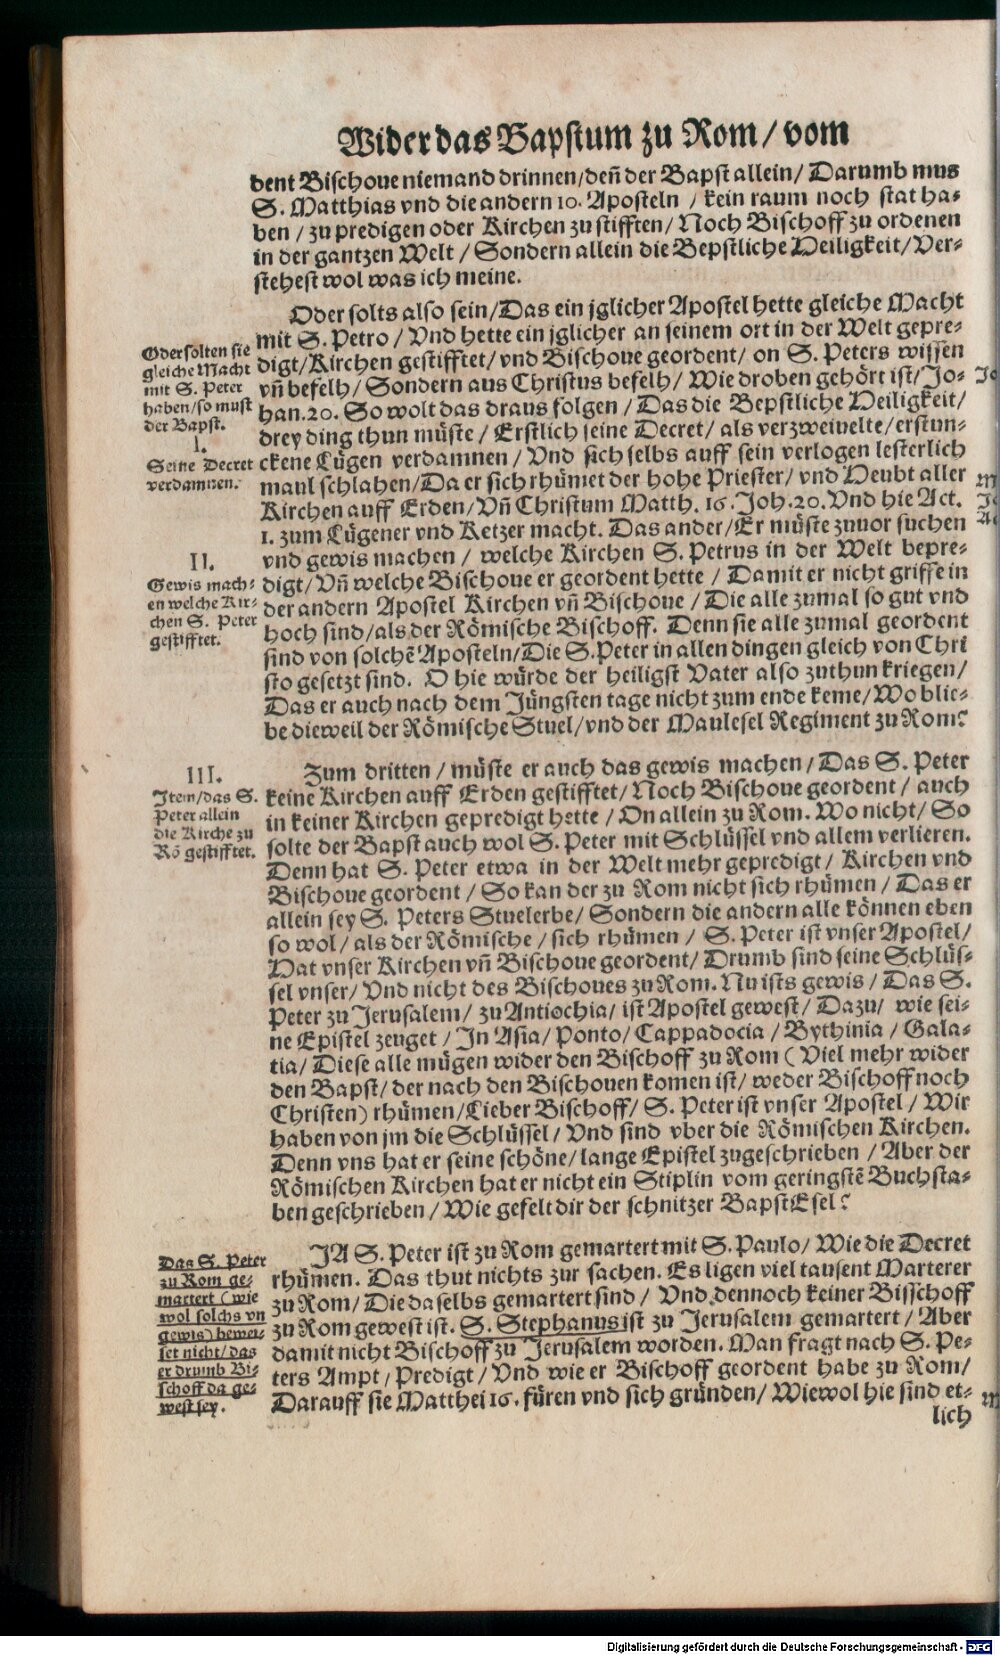 Wider das Bapstum zu Rom / vom
dent Bischoue niemand drinnen / deñ der Bapst allein / Darumb mus
S. Matthias vnd die andern 10. Aposteln / kein raum noch stat ha-
ben / zu predigen oder Kirchen zu stifften / Noch Bischoff zu ordenen
in der gantzen Welt / Sondern allein die Bepstliche Heiligkeit / Ver-
stehest wol was ich meine.
Oder solts also sein / Das ein jglicher Apostel hette gleiche Macht
mit S. Petro / Vnd hette ein jglicher an seinem ort in der Welt gepre-
digt / Kirchen gestifftet / vnd Bischoue geordent / on S. Peters wissen
vñ befelh / Sondern aus Christus befelh / Wie droben gehört ist / Jo-
han. 20. So wolt das draus folgen / Das die Bepstliche Heiligkeit /
drey ding thun müste / Erstlich seine Decret / als verzweiuelte / erstun-
ckene Lügen verdamnen / Vnd sich selbs auff sein verlogen lesterlich
maul schlahen / Da er sich rhümet der hohe Priester / vnd Heubt aller
Kirchen auff Erden / Vñ Christum Matth. 16. Joh. 20. Vnd hie Act.
1. zum Lügener vnd Ketzer macht. Das ander / Er müste zuuor suchen
vnd gewis machen / welche Kirchen S. Petrus in der Welt bepre-
digt / Vñ welche Bischoue er geordent hette / Damit er nicht griffe in
der andern Apostel Kirchen vñ Bischoue / Die alle zumal so gut vnd
hoch sind / als der Römische Bischoff. Denn sie alle zumal geordent
sind von solchē Aposteln / Die S. Peter in allen dingen gleich von Chri
sto gesetzt sind. O hie würde der heiligst Vater also zuthun kriegen /
Das er auch nach dem Jüngsten tage nicht zum ende keme / Wo blie-
be dieweil der Römische Stuel / vnd der Maulesel Regiment zu Rom?
Oder solten sie
gleiche Macht
mit S. Peter
haben / so must
der Bapst.
I.
Seine Decret
verdamnen.
II.
Gewis mach-
en welche Kir-
chen S. Peter
gestifftet.
Zum dritten / müste er auch das gewis machen / Das S. Peter
keine Kirchen auff Erden gestifftet / Noch Bischoue geordent / auch
in keiner Kirchen gepredigt hette / On allein zu Rom. Wo nicht / So
solte der Bapst auch wol S. Peter mit Schlüssel vnd allem verlieren.
Denn hat S. Peter etwa in der Welt mehr gepredigt / Kirchen vnd
Bischoue geordent / So kan der zu Rom nicht sich rhümen / Das er
allein sey S. Peters Stuelerbe / Sondern die andern alle können eben
so wol / als der Römische / sich rhümen / S. Peter ist vnser Apostel /
Hat vnser Kirchen vñ Bischoue geordent / Drumb sind seine Schlüs-
sel vnser / Vnd nicht des Bischoues zu Rom. Nu ists gewis / Das S.
Peter zu Jerusalem / zu Antiochia / ist Apostel gewest / Dazu / wie sei-
ne Epistel zeuget / In Asia / Ponto / Cappadocia / Bythinia / Gala-
tia / Diese alle mügen wider den Bischoff zu Rom ( Viel mehr wider
den Bapst / der nach den Bischouen komen ist / weder Bischoff noch
Christen) rhümen / Lieber Bischoff / S. Peter ist vnser Apostel / Wir
haben von jm die Schlüssel / Vnd sind vber die Römischen Kirchen.
Denn vns hat er seine schöne / lange Epistel zugeschrieben / Aber der
Römischen Kirchen hat er nicht ein Stiplin vom geringstē Buchsta-
ben geschrieben / Wie gefelt dir der schnitzer BapstEsel?
III.
Item / das S.
Peter allein
die Kirche zu
Rō gestifftet.
JA S. Peter ist zu Rom gemartert mit S. Paulo / Wie die Decret
rhümen. Das thut nichts zur sachen. Es ligen viel tausent Marterer
zu Rom / Die daselbs gemartert sind / Vnd dennoch keiner Bisschoff
zu Rom gewest ist. S. Stephanus ist zu Jerusalem gemartert / Aber
damit nicht Bischoff zu Jerusalem worden. Man fragt nach S. Pe-
ters Ampt / Predigt / Vnd wie er Bischoff geordent habe zu Rom /
Darauff sie Matthei 16. füren vnd sich gründen / Wiewol hie sind et-
lich
Das S. Peter
zu Rom ge-
martert (wie
wol solchs vn
gewis) bewei-
set nicht / das
er drumb Bi-
schoff da ge-
west sey.
Digitalisierung gefördert durch die Deutsche Forschungsgemeinschaft - DFG